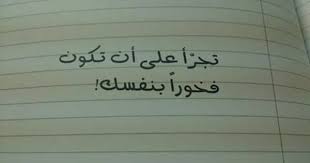 تجرّأ على أن تكون
فخوراً بنفسك!